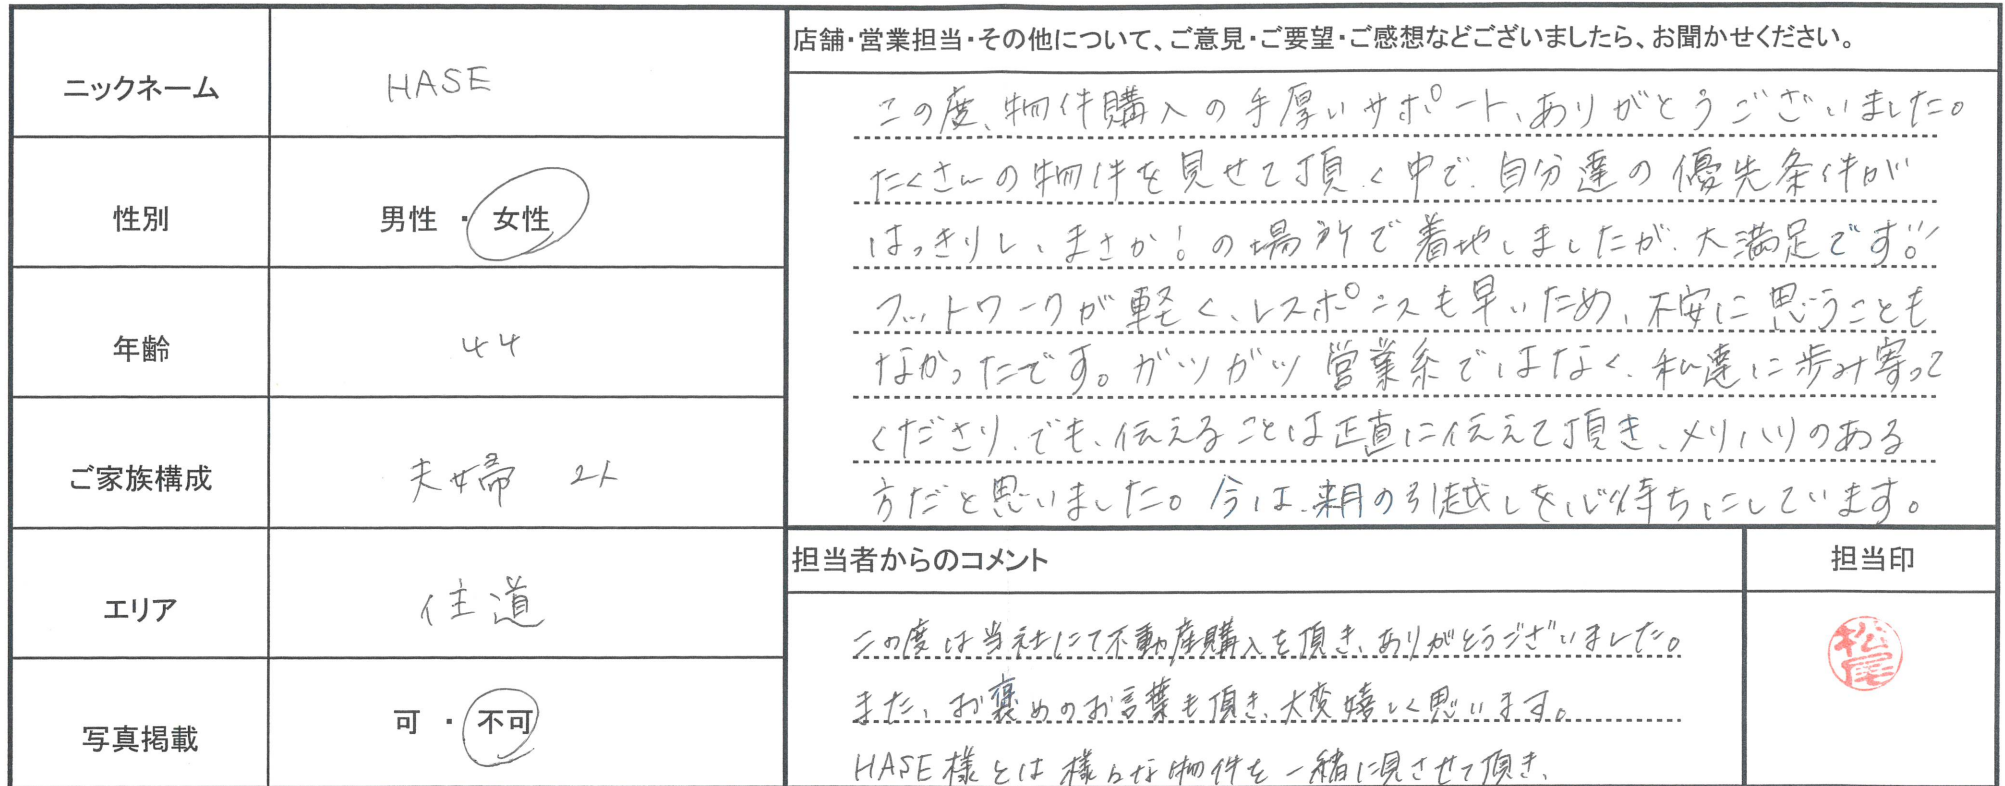 ニックネーム
HASE
性別
男性・女性
年齢
44
ご家族構成
夫婦 2人
エリア
住道
写真掲載
可・不可
店舗・営業担当・その他について、ご意見・ご要望・ご感想などございましたら、お聞かせください。
この度、物件購入の手厚いサポート、ありがとうございました。
たくさんの物件を見せて頂く中で、自分達の優先条件が
はっきりし、まさか!の場所で着地しましたが、大満足です!!
フットワークが軽く、レスポンスも早いため、不安に思うことも
なかったです。ガツガツ営業系ではなく、私達に歩み寄って
くださり、でも、伝えることは正直に伝えて頂き、メリハリのある
方だと思いました。今は、来月の引越しを心待ちにしています。
担当者からのコメント
担当印
この度は当社にて不動産購入を頂き、ありがとうございました。
また、お褒めのお言葉も頂き、大変嬉しく思います。
HASE様とは様々な物件を一緒に見させて頂き、
松尾